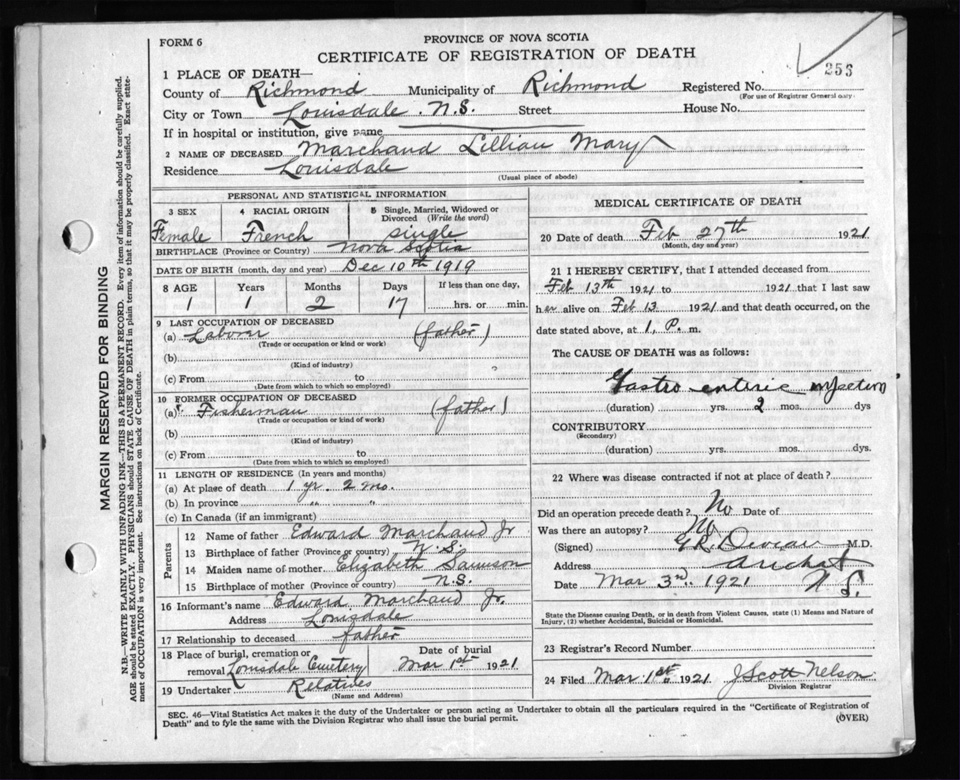 FORM 6
PROVINCE OF NOVA SCOTIA
CERTIFICATE OF REGISTRATION OF DEATH
253
1 PLACE OF DEATH—
County of Richmond Municipality of Richmond Registered No.
(For use of Registrar General only)
City or Town Louisdale . N.S. Street House No.
If in hospital or institution, give name
2 NAME OF DECEASED Marchand Lillian Mary
Residence Louisdale
(Usual place of abode)
PERSONAL AND STATISTICAL INFORMATION
3 SEX 4 RACIAL ORIGIN 5 Single, Married, Widowed or Divorced (Write the word)
Female French single
BIRTHPLACE (Province or Country) Nova Scotia
DATE OF BIRTH (month, day and year) Dec 10th 1919
8 AGE Years Months Days If less than one day,
1 1 2 17 hrs. or min.
9 LAST OCCUPATION OF DECEASED
(a) Laborer (father)
(Trade or occupation or kind or work)
(b)
(Kind of industry)
(c) From to
(Date from which to which so employed)
10 FORMER OCCUPATION OF DECEASED
(a) Fisherman (father)
(Trade or occupation or kind of work)
(b)
(Kind of industry)
(c) From to
(Date from which to which so employed)
11 LENGTH OF RESIDENCE (In years and months)
(a) At place of death 1 yr. 2 mo.
(b) In province " "
(c) In Canada (if an immigrant)
Parents
12 Name of father Edward Marchand Jr
13 Birthplace of father (Province or country) N.S.
14 Maiden name of mother Elizabeth Samson
15 Birthplace of mother (Province or country) N.S.
16 Informant's name Edward Marchand Jr.
Address Louisdale
17 Relationship to deceased father
18 Place of burial, cremation or removal Louisdale Cemetery Date of burial Mar 1st 1921
19 Undertaker Relatives
(Name and Address)
MEDICAL CERTIFICATE OF DEATH
20 Date of death Feb 27th 1921
(Month, day and year)
21 I HEREBY CERTIFY, that I attended deceased from
Feb 13th 1921 to 1921 that I last saw
her alive on Feb 13 1921 and that death occurred, on the
date stated above, at 1, P. m.
The CAUSE OF DEATH was as follows:
Gastro enteric infection
(duration) yrs. 2 mos. dys
CONTRIBUTORY
(Secondary)
(duration) yrs. mos. dys.
22 Where was disease contracted if not at place of death?
Did an operation precede death? No Date of
Was there an autopsy? No
(Signed) Deveau M.D.
Address Arichat
Date Mar 3rd. 1921 N.S.
State the Disease causing Death, or in death from Violent Causes, state (1) Means and Nature of Injury, (2) whether Accidental, Suicidal or Homicidal.
23 Registrar's Record Number
24 Filed Mar 1st 1921 J Scott Nelson
Division Registrar
SEC. 46—Vital Statistics Act makes it the duty of the Undertaker or person acting as Undertaker to obtain all the particulars required in the "Certificate of Registration of
Death" and to fyle the same with the Division Registrar who shall issue the burial permit.
(OVER)
MARGIN RESERVED FOR BINDING
N.B.—WRITE PLAINLY WITH UNFADING INK—THIS IS A PERMANENT RECORD. Every item of information should be carefully supplied.
AGE should be stated EXACTLY. PHYSICIANS should STATE CAUSE OF DEATH in plain terms, so that it may be properly classified. Exact statement of OCCUPATION is very important. See instructions on back of Certificate.